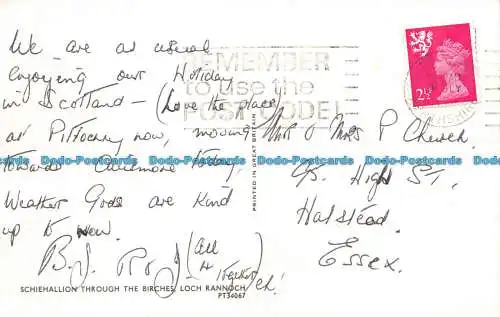 We are as usual
enjoying our Holiday
in Scotland – (Love the place)
at Pitlochry now, moving
towards Aviemore today,
Weather Gods are kind
up to now.
B.J. Roy (all
4
together
eh!
REMEMBER
to use the
POST CODE!
2½
Mr & Mrs P Church.
High St,
Halstead.
Essex.
PRINTED IN GREAT BRITAIN
SCHIEHALLION THROUGH THE BIRCHES, LOCH RANNOCH
PT36067
Dodo-Postcards Dodo-Postcards Dodo-Postcards Dodo-Postcards Dodo-Postcards